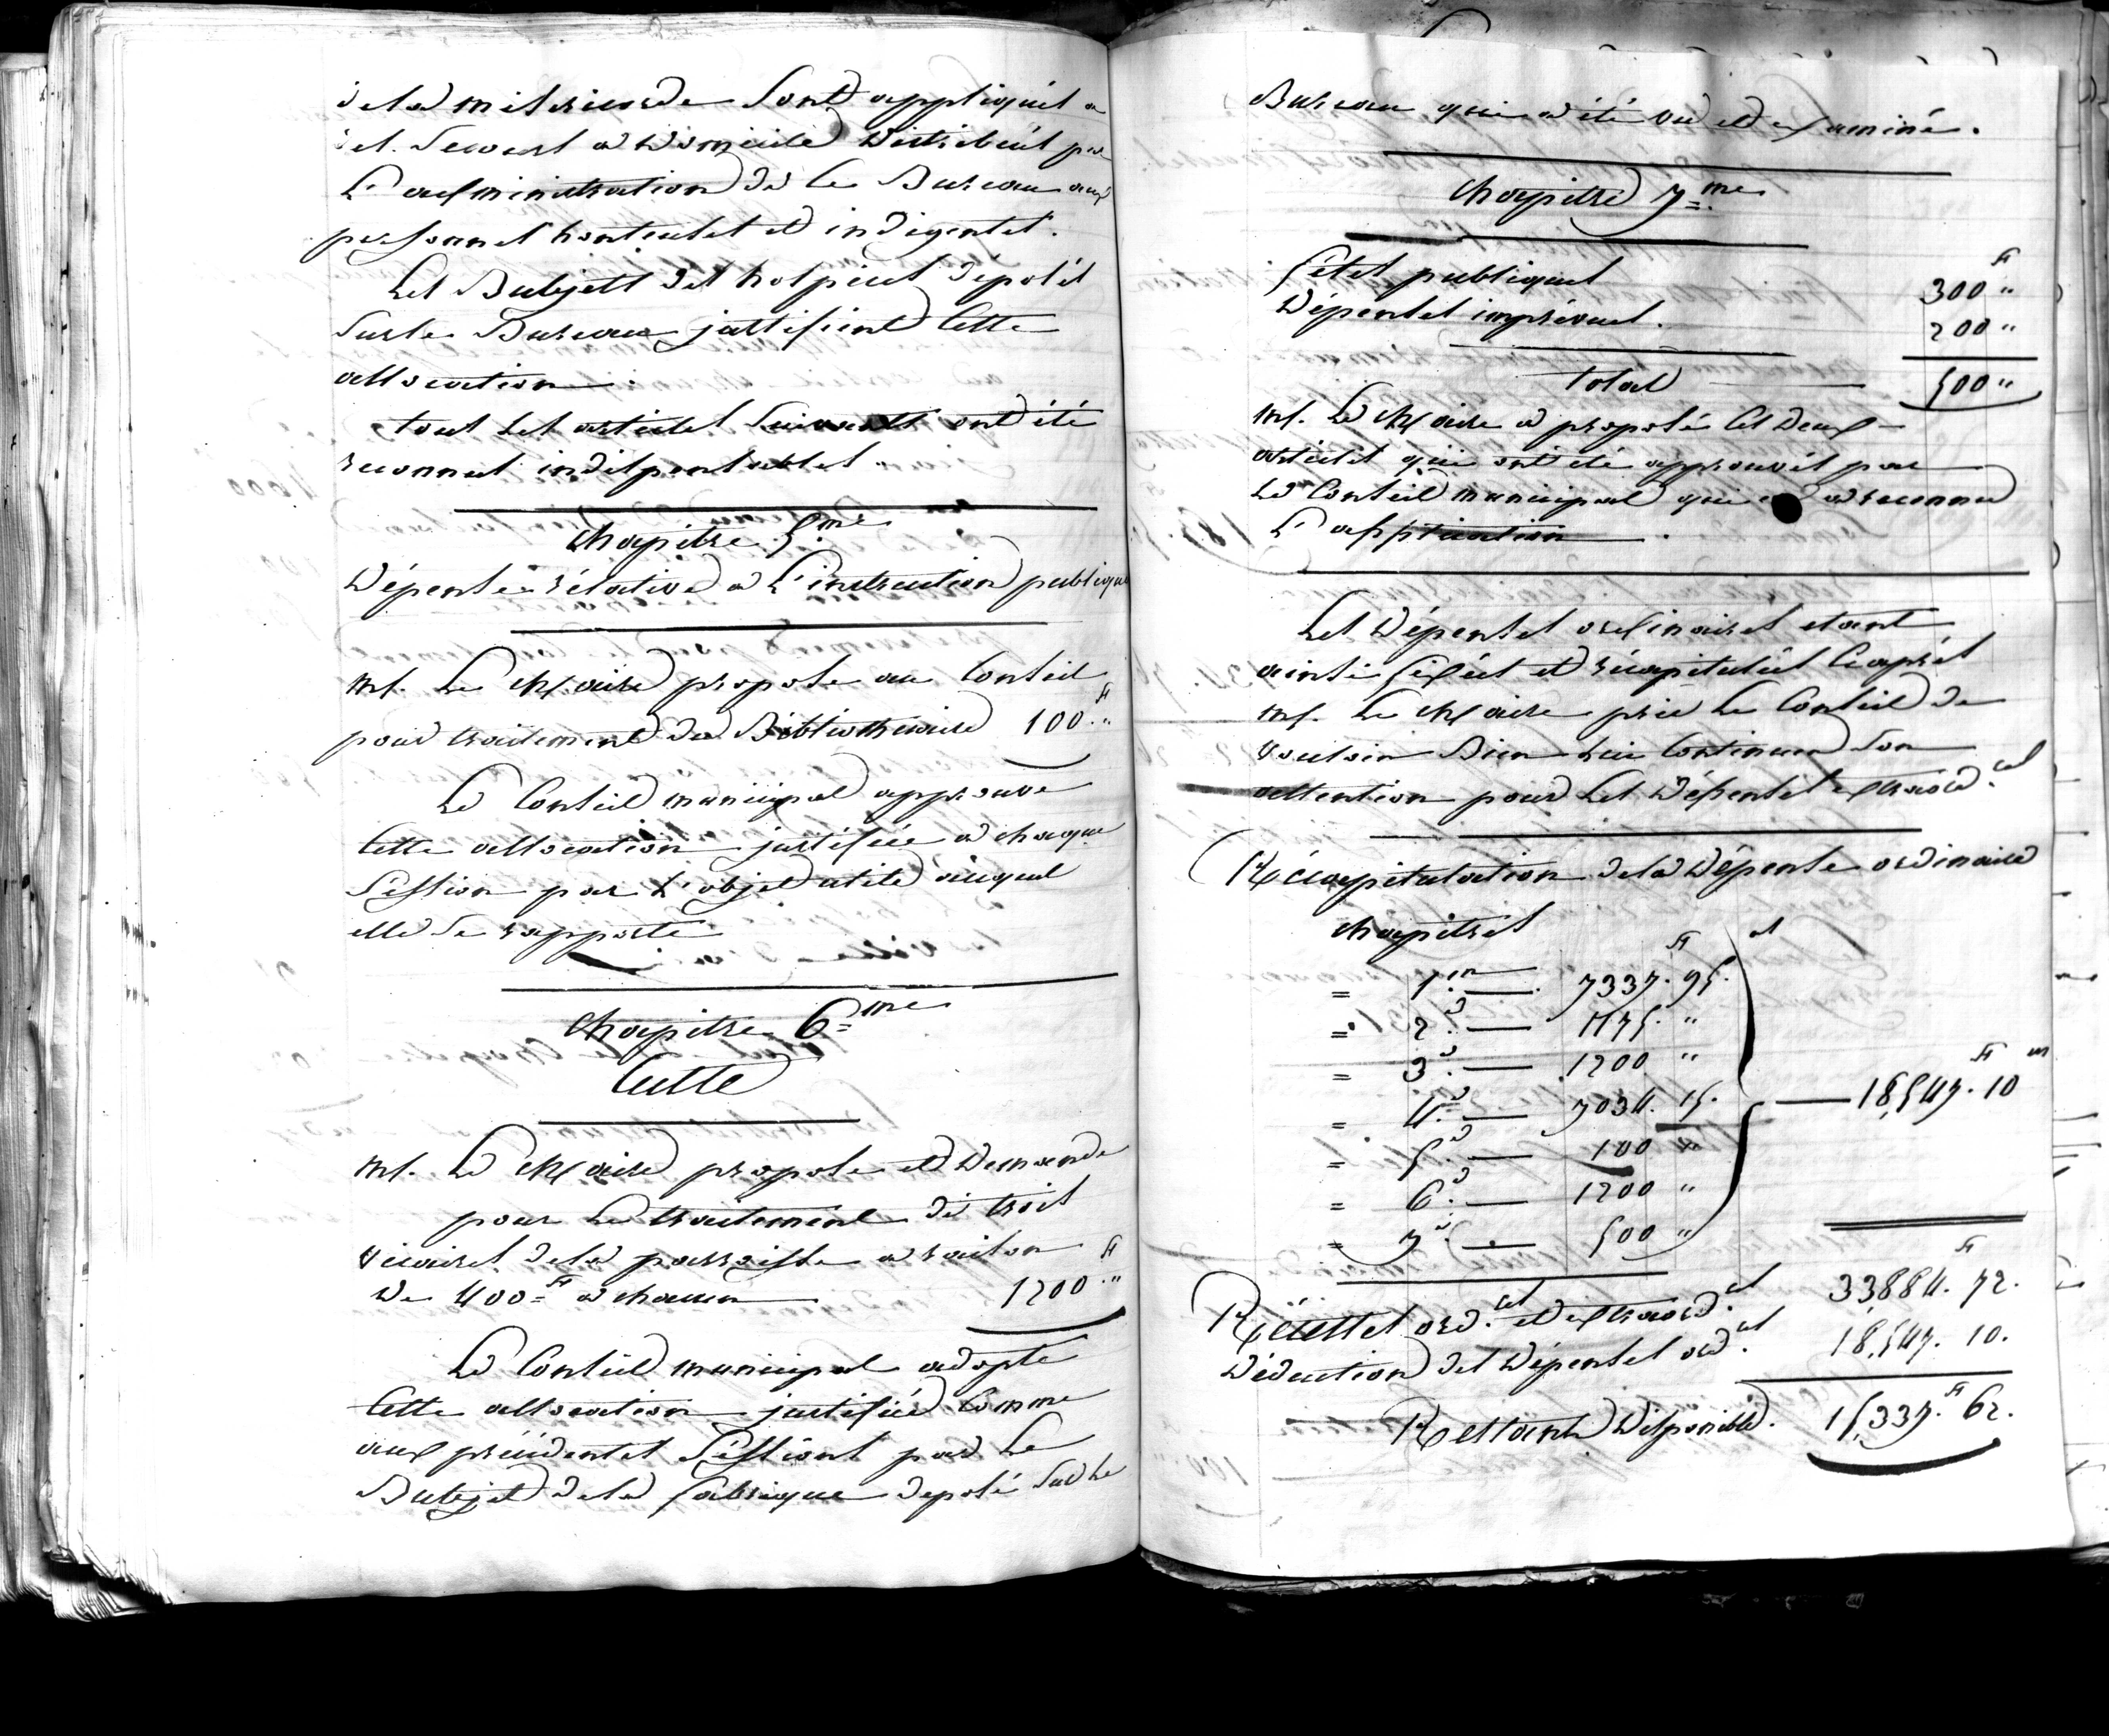 de la misericorde sont appliqués a
des secours a domicile distribués par
L'administration de ce Bureau aux
personnes honteuses et indigentes.
Les Budjets des hospices déposés
sur le Bureau justifient cette
allocation.
tous les articles suivants ont été
reconnus indispensables.
Chapitre 5.me
Dépense rélative a L'instruction publique
Mr. Le Maire propose au Conseil
pour traitement du Bibliothecaire 100.f "
Le Conseil municipal approuve
cette allocation justifiée a chaque
session par L'objet utile auquel
elle se rapporte
Chapitre 6.me
Culte
Mr. Le Maire propose et demande
pour Le traitement de trois
vicaires de la parroisse a raison
de 400 f a chacun 1200.f "
Le Conseil municipal adopte
cette allocation justifiée comme
aux précédentes sessions par Le
Budjet de la fabrique deposé sur Le
Bureau qui a été vu et examiné.
Chapitre 7.me
fêtes publiques 300 f "
Dépenses imprévues. 200 "
Total 500 "
Mr. Le Maire a proposé ces deux
articles qui ont été approuvés par
Le Conseil municipal qui en a reconnu
L'application.
Les Dépenses ordinaires etant
ainsi fixées et récapitulées ciaprès
Mr. Le Maire prie Le Conseil de
vouloir Bien lui continuer son
attention pour Les Dépenses extraord.es
Récapitulation de la Dépense ordinaire
chapitres
= 1.er 7337.f 95.cs
= 2.d 1175. "
= 3.d 1200 "
= 4.d 7034. 15. 18,547.f 10
= 5.d 100 "
= 6.d 1200 "
= 7.d 500 "
Récettes ord.es et extraord.es 33884.f 72.
Déduction des Dépenses ord.es 18,547. 10.
Restant Disponible. 15,337.f 62.